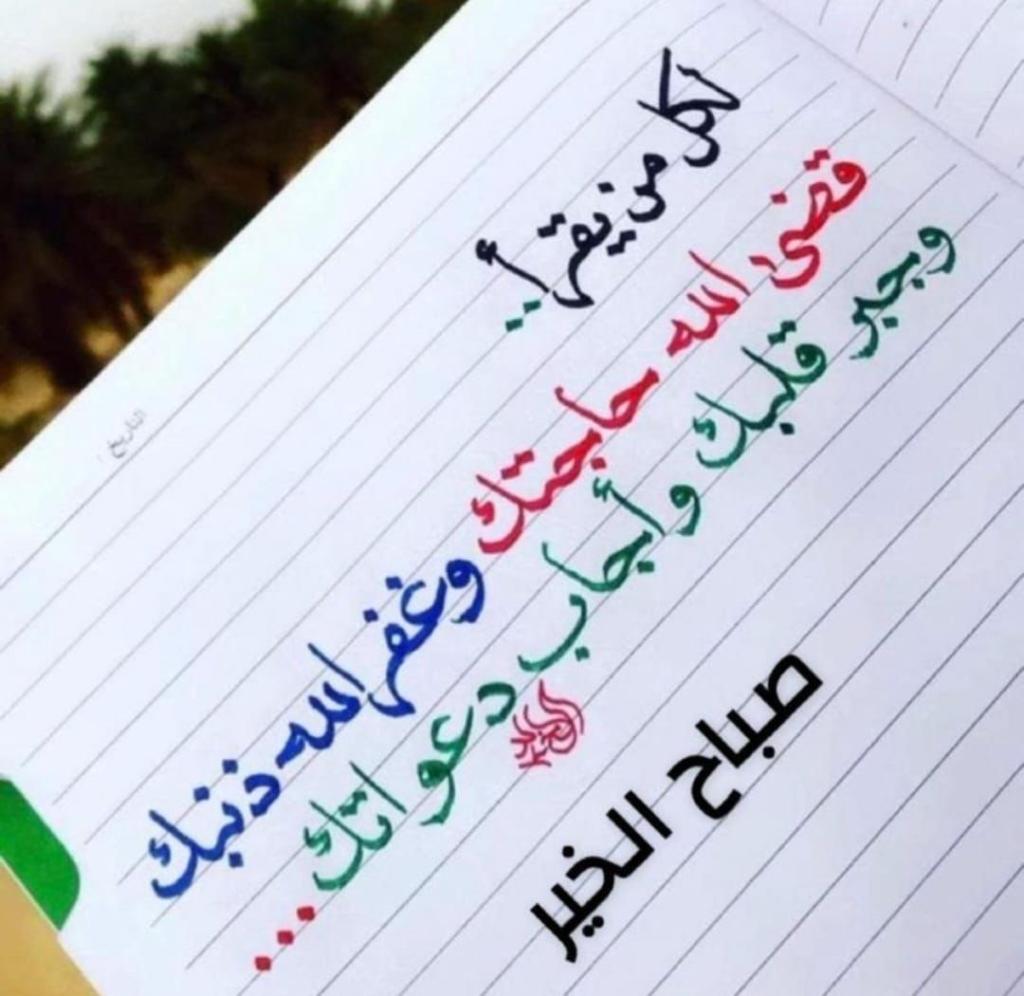 لكل من يقرأ..
قضىٰ الله حاجتك وغفر الله ذنبك
وجبر قلبك وأجاب دعواتك ...
صباح الخير
التاريخ